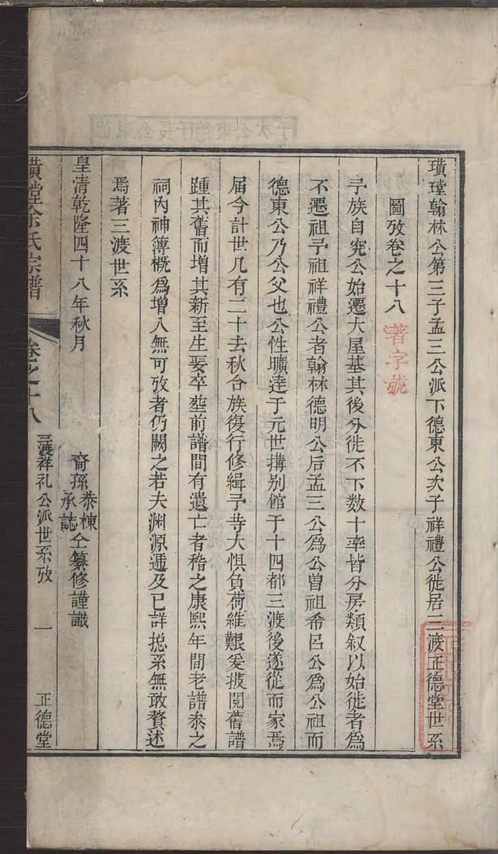 璜瑝翰林公第三子孟三公派下德東公次子祥禮公徙居三渡正德堂世系
圖攷卷之十八
著字號
予族自究公始遷大屋基其後分徙不下数十率皆分房類叙以始徙者爲
不遷祖予祖祥禮公者翰林德明公后孟三公爲公曽祖希呂公爲公祖而
德東公乃公父也公性曠達于元世搆别館于十四都三渡後遂從而家焉
届今計世凡有二十去秋合族復行修緝予等大懼負荷維艱爰披閲舊譜
踵其舊而增其新至生娶卒塟前譜間有遺亡者稽之康熙年間老譜叅之
祠内神簿概爲增入無可攷者仍闕之若夫淵源逓及已詳捴系無敢贅述
焉著三渡世系
皇清乾隆四十八年秋月
裔孫泰棟承誌仝纂修謹識
璜瑝余氏宗譜
卷之十八
三渡祥礼公派世系攷
一
正德堂